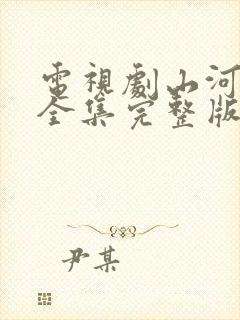 電視劇山河
全集完整版
尹某